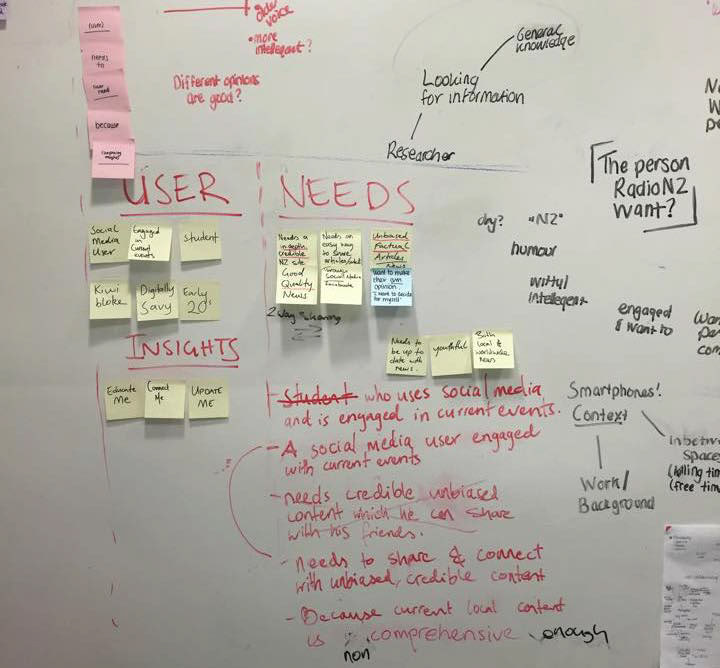 (user)
needs
to
because
voice
• more
intellegant?
Different opinions
are good?
General
knowledge
Looking
for information
Researcher
The person
RadioNZ
want?
USER
Social
Media
User
Engaged
in
Current
events
Student
Kiwi
bloke
Digitally
Savy
Early
20s
INSIGHTS
Educate
Me
Connect
Me
UPDATE
ME
NEEDS
Needs a
in depth,
credible
NZ site
Good
Quality
News
Needs an
easy way
to share
Through
Social Media
Facebook
Unbiased
Factual
Articles
News
want to make
their own
opinion.
"I want to decide
for myself"
2 way sharing
Needs to
be up to
date with
news.
youthful
Both
local &
worldwide
news
dry?
"NZ"
humour
witty/
intellegent
engaged
& want to
- Student who uses social media
and is engaged in current events.
- A social media user engaged
with current events
- needs credible unbiased
content which he can share
with his friends.
- needs to share & connect
with unbiased, credible content
- Because current local content
is comprehensive enough
non
Smartphones!
Context
Work/
Background
Spaces
(killing tim
(free tim